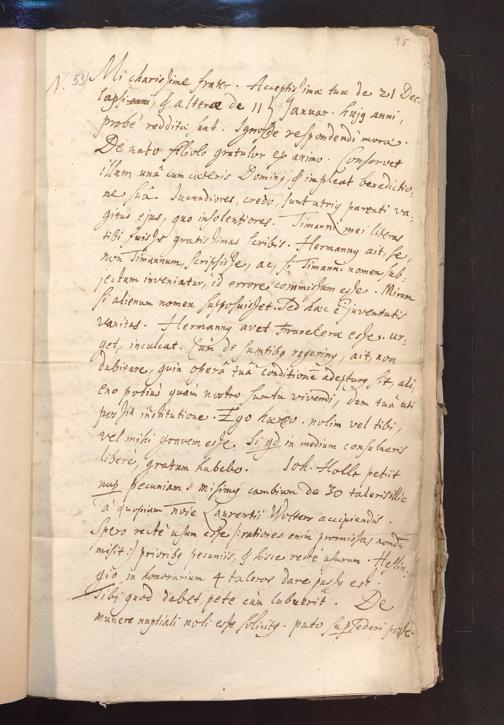 95
N. 53) Mi charissime frater. Acceptissima tua de 21 Dec.
lapsi anni, & altera de 11 Januar. hujq anni,
probè reddita sat. Ignosce respondendi mora.
De nato filiolo gratulor ex animo. Conservet
illum unà cum cæteris Dominq, & impleat benedictio-
ne suâ. Jucundiores, credo, sunt utriq parenti va-
gitus ejus, quo insolentiores. Timanni mei literas
tibi fuisse gratissimas scribis. Hermannq ait, se,
non Timannum, scripsisse, ac, si Timanni nomen sub-
jectum inveniatur, id errore commissum esse. Mirum
si alienum nomen supposuisset. Sed hæc ē juventutis
vanitas. Hermannq avet Franekeræ esse. ur-
get, inculcat. Cùm de sumtibq regerimq, ait non
dubitare, quin operâ tuâ conditionē adepturq sit, ali-
eno potius quàm nostro sumtu vivendi, dum tuâ uti
possit institutione. Ego hæreo. nolim vel tibi,
vel mihi gravem esse. Si qd in medium consulueris
liberè, gratum habebo. Joh. Hollt petiit
nup pecuniam: misimq cambium de 30 taleris illic
à quopiam noīe Laurentii Wolters accipiendis.
Spero rectè usum esse /:rationes enim promissas nondū
misit:/ prioribq pecuniis, & hisce rectè usurum.
in honorarium 4 taleros dare jussq est.
Sibi quod debet, pete cùm lubuerit. De
munere nuptiali noli esse solicitq. puto supsederi posse